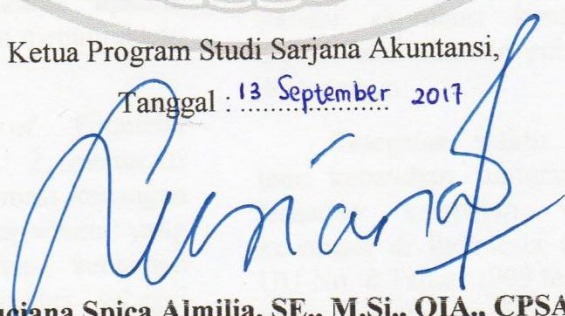 Ketua Program Studi Sarjana Akuntansi,
Tanggal : 13 September 2017
Luciana Spica Almilia, SE., M.Si., QIA., CPSA